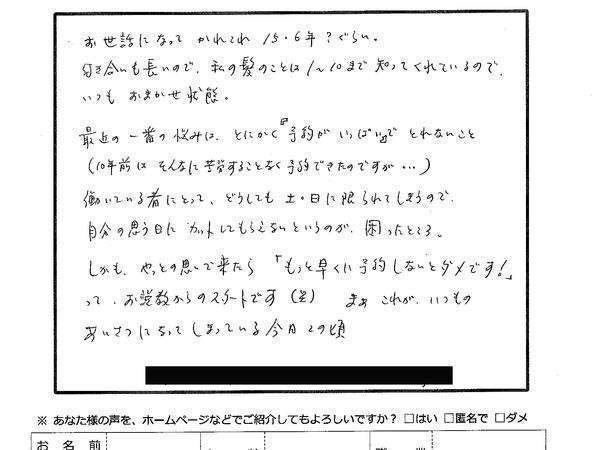 お世話になって かれこれ 15・6年?ぐらい。
付き合いも長いので、私の髪のことは1~10まで知ってくれているので、
いつも おまかせ状態。
最近の一番の悩みは、とにかく『予約がいっぱい』で とれないこと
(10年前は そんなに苦労することなく予約できたのですが…)
働いている者にとって、どうしても 土・日に限られてしまうので、
自分の思う日に カットしてもらえないというのが、困ったところ。
しかも、やっとの思いで来たら 「もっと早くに予約しないとダメです!」
って、お説教からのスタートです(笑) まぁ これが、いつもの
あいさつになってしまっている今日この頃
※ あなた様の声を、ホームページなどでご紹介してもよろしいですか? □はい □匿名で □ダメ
お 名 前